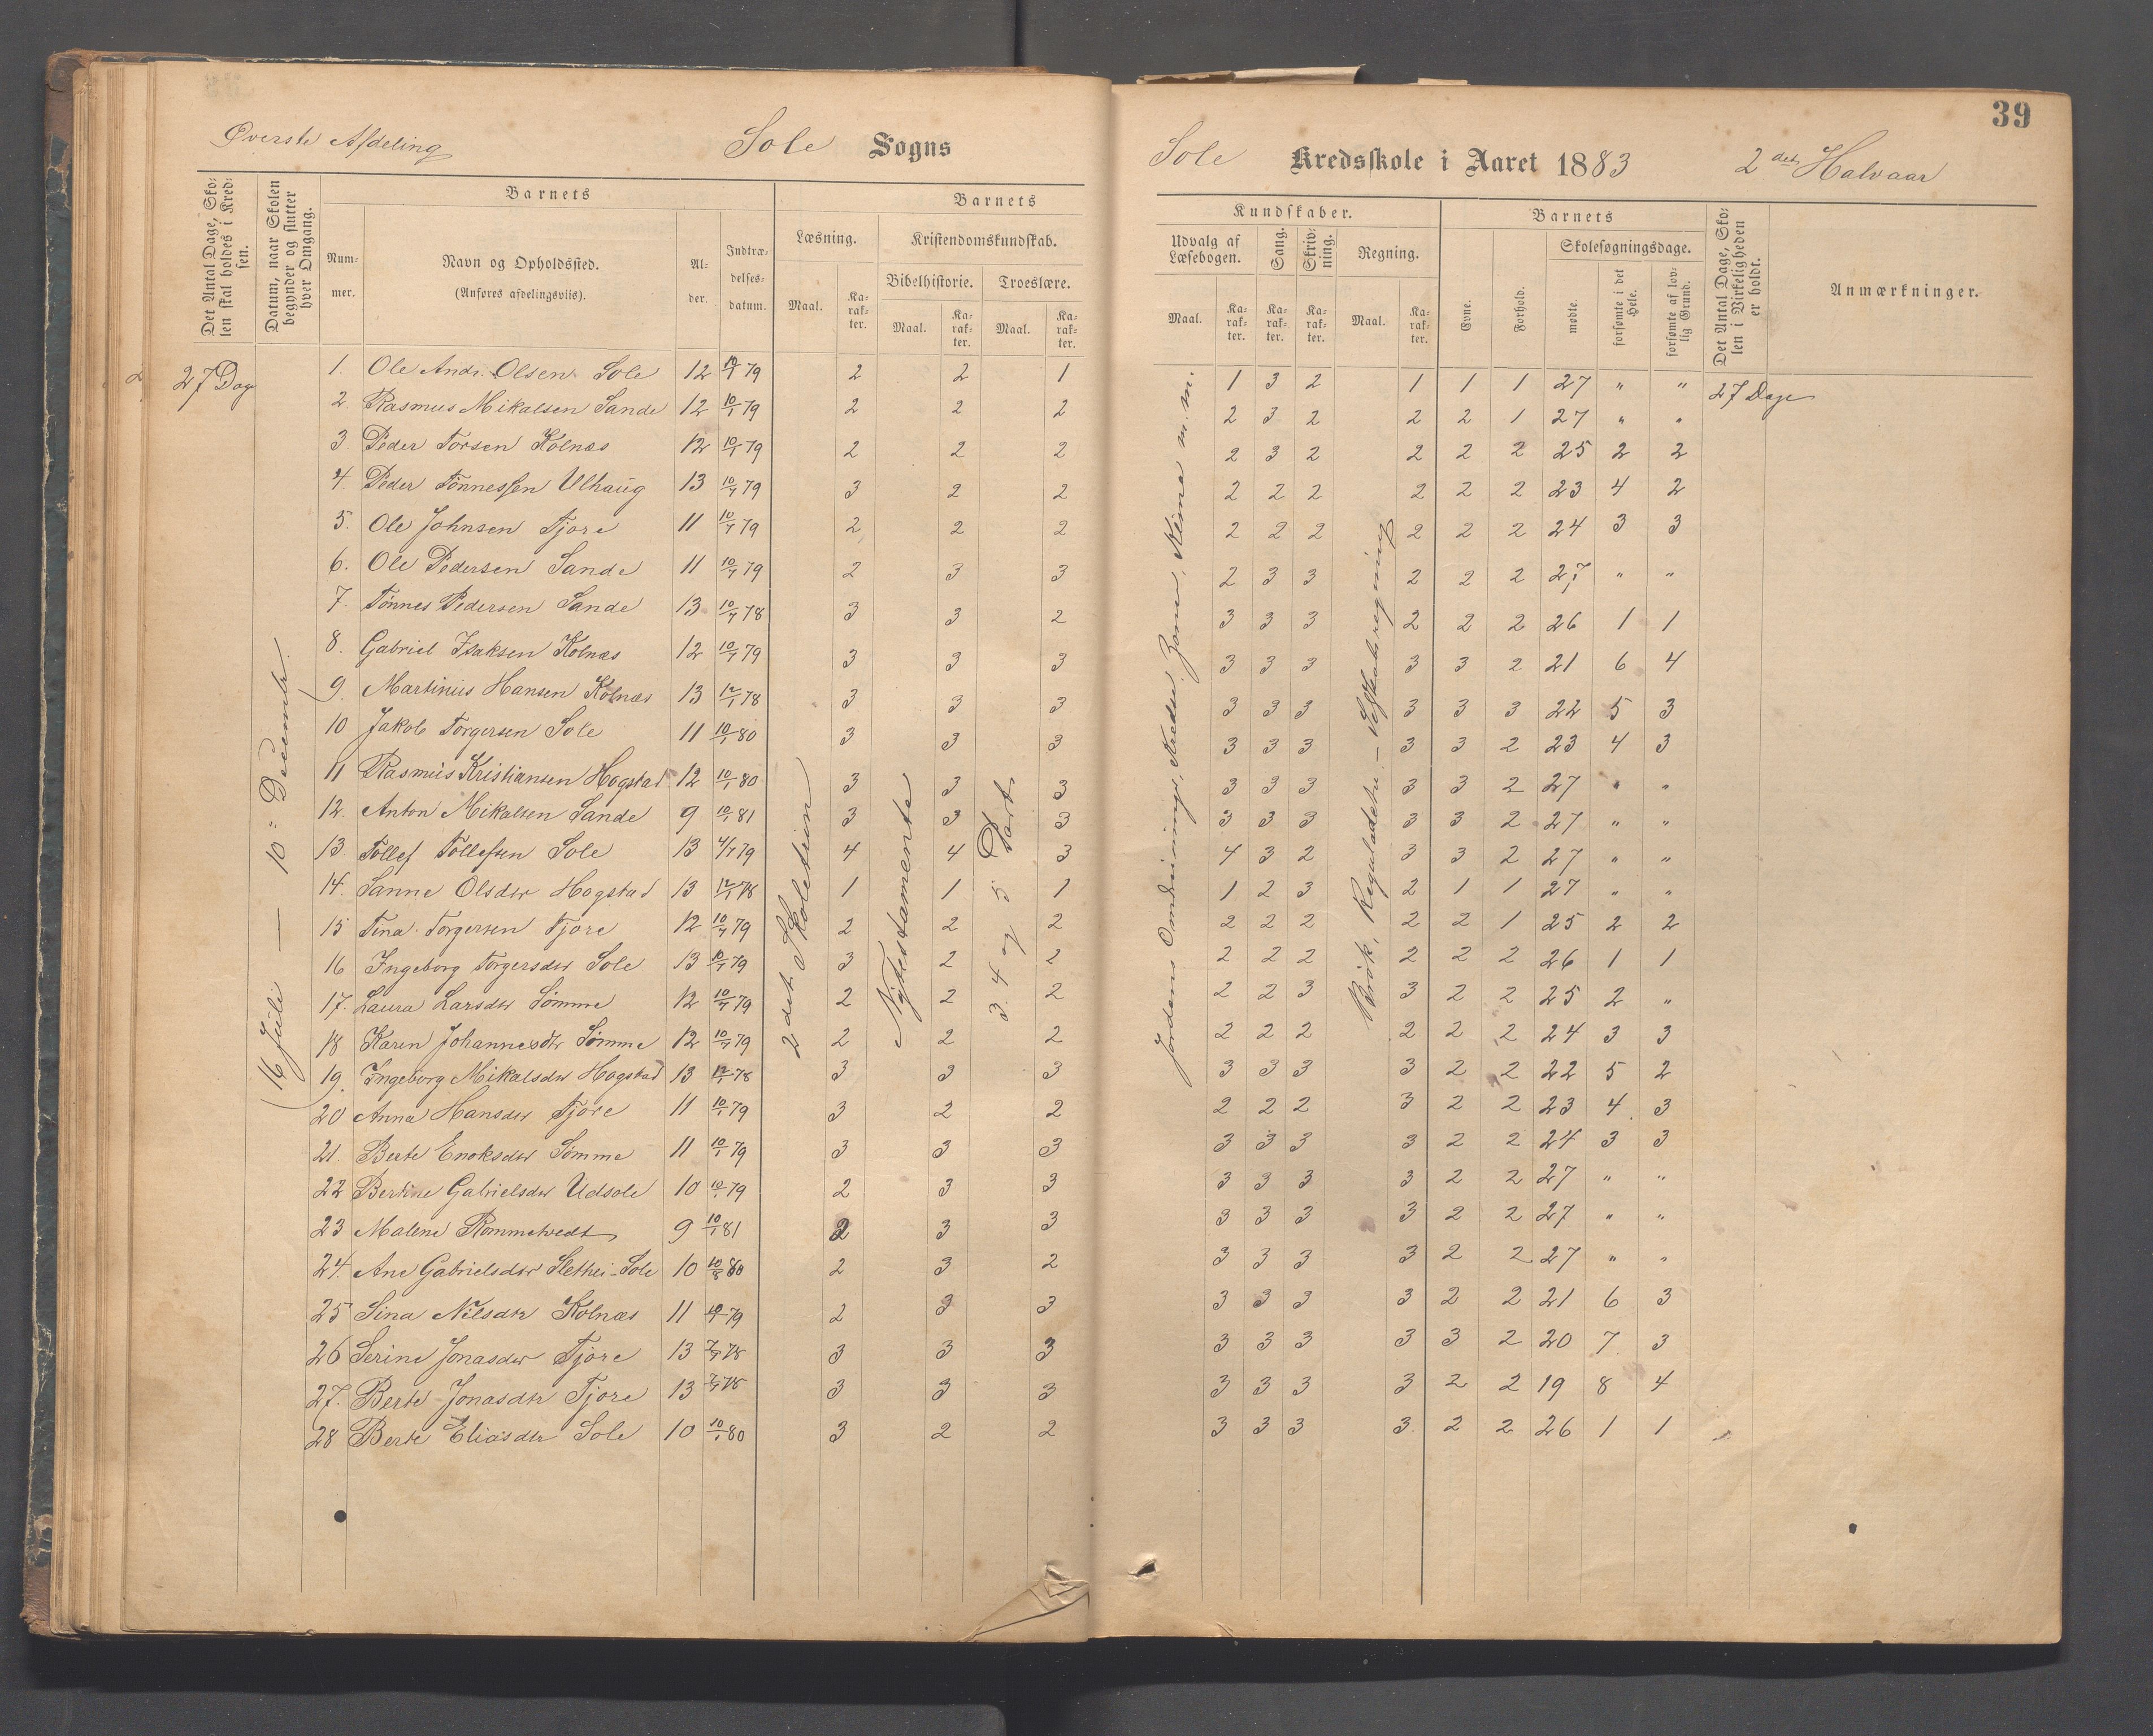 39
Øverste Afdeling Sole Sogns
Sole Kredsskole i Aaret 1883 2det Halvaar
Det Antal Dage, Skolen skal holdes i Kredsen.
Datum, naar Skolen begynder og slutter hver Omgang.
Barnets
Nummer.
Navn og Opholdssted.
(Anføres afdelingsviis).
Alder.
Indtrædelsesdatum.
Barnets
Læsning.
Maal.
Karakter.
Kristendomskundskab.
Bibelhistorie.
Maal.
Karakter.
Troeslære.
Maal.
Karakter.
Kundskaber.
Udvalg af Læsebogen.
Maal.
Karakter.
Sang.
Karakter.
Skrivning.
Karakter.
Regning.
Maal.
Karakter.
Barnets
Evne.
Forhold.
Skolesøgningsdage.
mødte.
forsømte i det Hele.
forsømte af lovlig Grund.
Det Antal Dage, Skolen i Virkeligheden er holdt.
Anmærkninger.
27 Dage
16 Juli — 10 December
2det Skoletrin
Nytestamente
3. 4 og 5 Part
27 Dage
1. Ole Andr. Olsen Sole 12 10/1 79 2 2 1 1 3 2 1 1 1 27 " "
2 Rasmus Mikalsen Sande 12 10/1 79 2 2 2 2 3 2 2 2 1 27 " "
3 Peder Torsen Kolnæs 12 10/1 79 2 2 2 2 3 2 2 2 2 25 2 2
4. Peder Tønnessen Ulhaug 13 10/1 79 3 2 2 2 2 2 2 2 2 23 4 2
5. Ole Johnsen Tjore 11 10/1 79 2 2 2 2 2 2 2 2 2 24 3 3
6. Ole Pedersen Sande 11 10/1 79 2 3 3 2 3 3 2 2 2 27 " "
7. Tønnes Pedersen Sande 13 10/1 78 3 3 2 3 3 3 2 2 2 26 1 1
8. Gabriel Isaksen Kolnæs 12 10/1 79 3 3 3 3 3 3 3 3 2 21 6 4
9. Martinius Hansen Kolnæs 13 12/1 78 3 3 3 3 3 3 3 3 3 22 5 3
10 Jakob Torgersen Sole 11 10/1 80 3 3 3 3 3 3 3 3 2 23 4 3
11 Rasmus Kristiansen Hogstad 12 10/1 80 3 3 3 3 3 3 3 3 2 27 " "
12. Anton Mikalsen Sande 9 10/1 81 3 3 3 3 3 3 3 3 2 27 " "
13. Tollef Tollefsen Sole 13 4/1 79 4 4 3 4 3 2 3 3 2 27 " "
14. Sanne Olsdtr Hogstad 13 12/1 78 1 1 1 1 2 3 2 1 1 27 " "
15 Tina Torgersen Tjore 12 10/1 79 2 2 2 2 2 2 2 2 1 25 2 2
16 Ingeborg Torgersdtr Sole 13 10/1 79 3 2 2 2 2 2 2 2 2 26 1 1
17. Laura Larsdtr Sømme 12 10/1 79 2 2 2 2 2 3 3 2 2 25 2 "
18 Karen Johannesdtr Sømme 12 10/1 79 2 2 2 2 2 2 2 2 2 24 3 3
19. Ingeborg Mikalsdtr Hogstad 13 12/1 78 3 3 3 3 3 3 3 2 2 22 5 2
20 Anna Hansdtr Tjore 11 10/1 79 3 2 2 2 2 2 3 2 2 23 4 3
21. Berte Enoksdtr Sømme 11 10/1 79 3 3 3 3 3 3 3 2 2 24 3 3
22 Bertine Gabrielsdtr Udsole 10 10/1 79 2 3 3 3 3 3 3 2 2 27 " "
23 Malene Rommetvedt 9 10/1 81 2 3 3 3 3 3 3 2 2 27 " "
24. Ane Gabrielsdtr Slethei-Sole 10 10/8 80 2 3 2 3 3 3 3 2 2 27 " "
25 Sina Nilsdtr Kolnæs 11 10/1 79 2 3 3 3 3 3 3 2 2 21 6 3
26 Serine Jonasdtr Tjore 13 7/1 78 3 3 3 3 3 3 3 3 2 20 7 3
27. Berte Jonasdtr Tjore 13 7/1 78 3 3 3 3 3 3 3 2 2 19 8 4
28 Berte Eliasdtr Sole 10 10/1 80 3 2 2 3 3 3 3 2 2 26 1 1